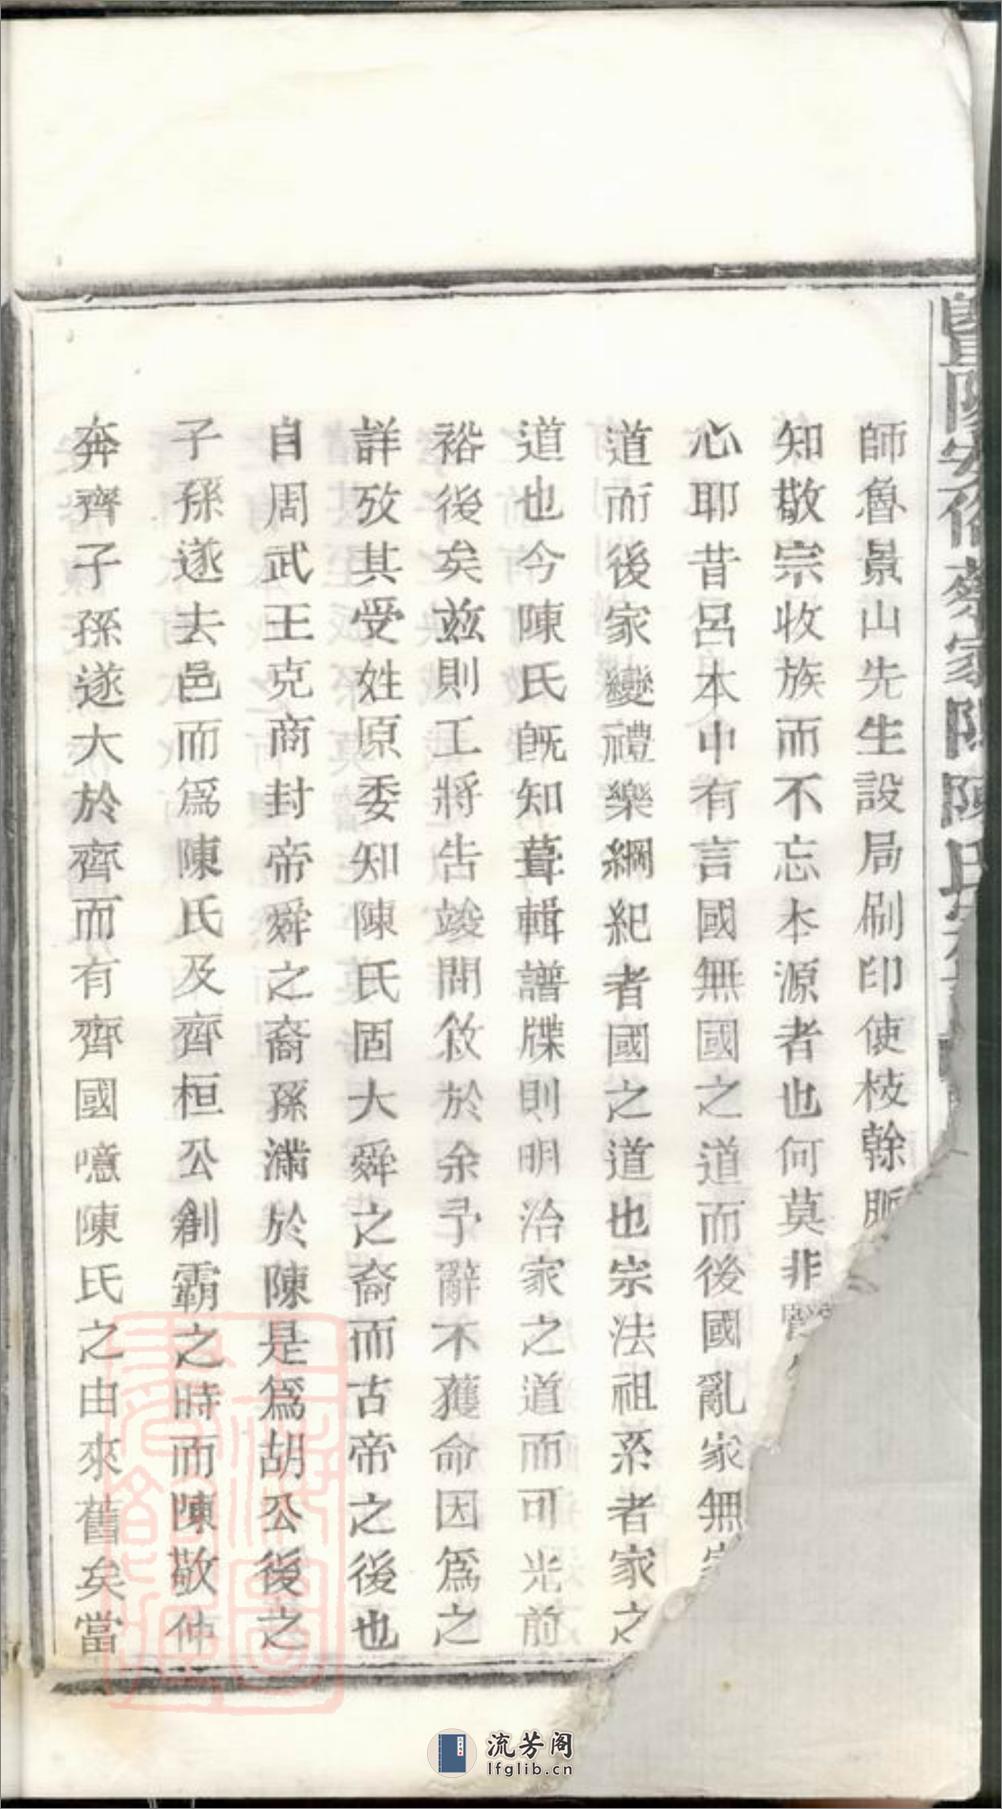 暨陽安俗蔡家陳陳氏宗
師魯景山先生設局刷印使枝幹脈
知敬宗收族而不忘本源者也何莫非
心耶昔呂本中有言國無國之道而後國亂家無家
道而後家變禮樂綱紀者國之道也宗法祖系者家之
道也今陳氏旣知葺輯譜牒則明治家之道而可光前
裕後矣兹則工將告竣問敘於余予辭不獲命因爲之
詳攷其受姓原委知陳氏固大舜之裔而古帝之後也
自周武王克商封帝舜之裔孫滿於陳是爲胡公後之
子孫遂去邑而爲陳氏及齊桓公創霸之時而陳敬仲
奔齊子孫遂大於齊而有齊國噫陳氏之由來舊矣當
流芳阁
lfglib.cn